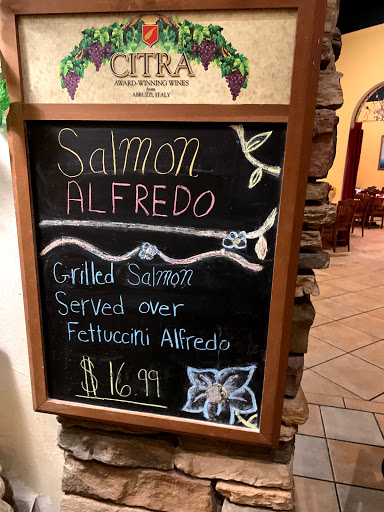 CITRA
AWARD-WINNING WINES
from
ABRUZZI, ITALY
Salmon
ALFREDO
Grilled Salmon
Served over
Fettuccini Alfredo
$ 16.99